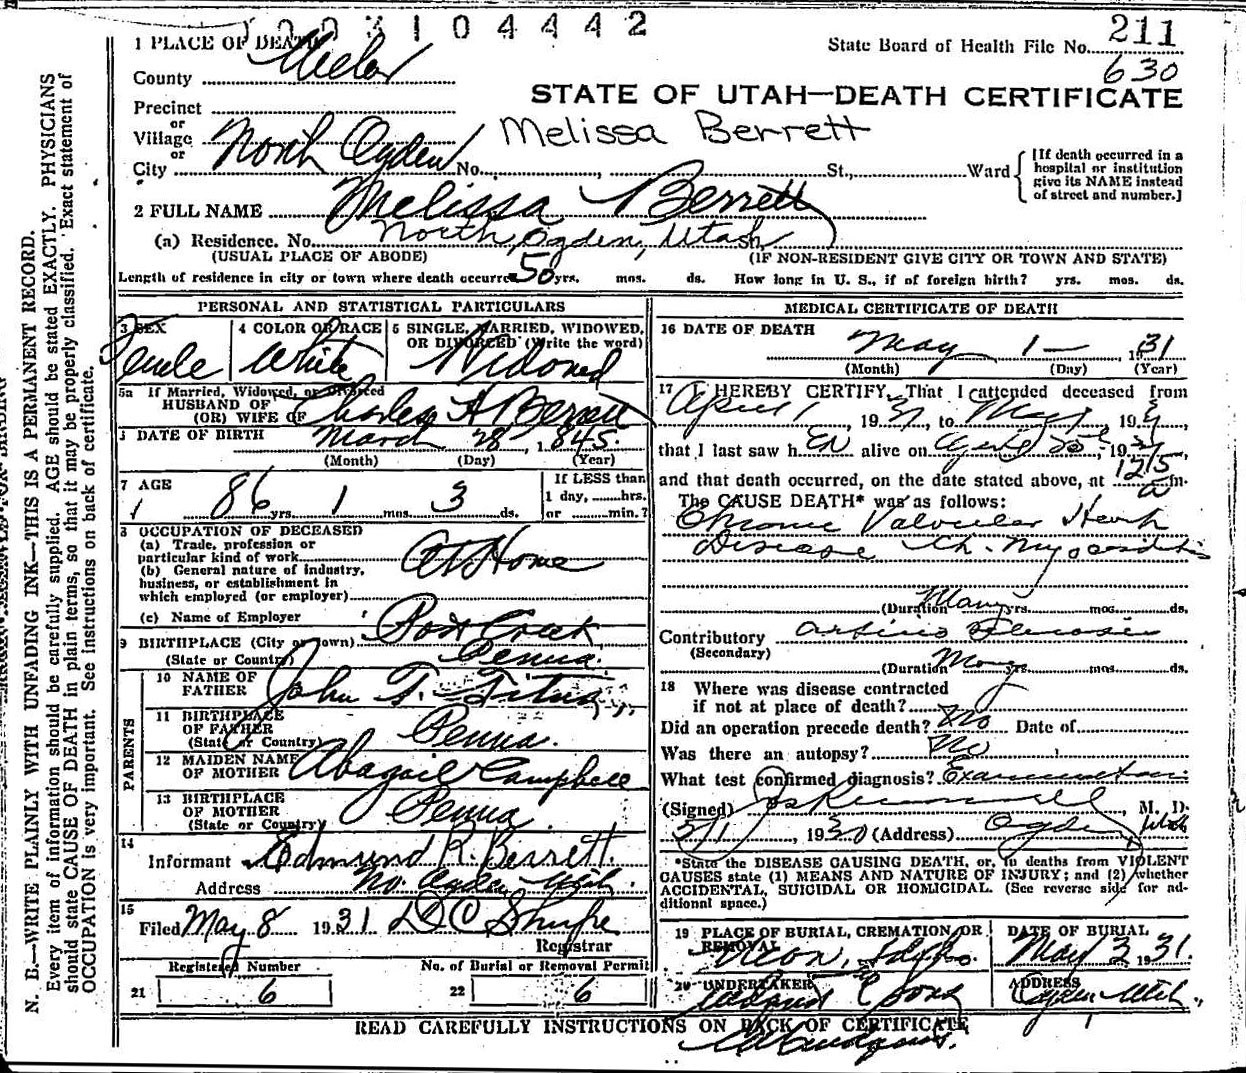 3 1 0 4 4 4 2
1 PLACE OF DEATH
State Board of Health File No. 211
630
County Weber
STATE OF UTAH—DEATH CERTIFICATE
Precinct
or
Village
Melissa Berrett
or
City North Ogden No. , St., Ward
[If death occurred in a
hospital or institution
give its NAME instead
of street and number.]
2 FULL NAME Melissa Berrett
(a) Residence. No. North Ogden, Utah
(USUAL PLACE OF ABODE) (IF NON-RESIDENT GIVE CITY OR TOWN AND STATE)
Length of residence in city or town where death occurred 50 yrs. mos. ds. How long in U. S., if of foreign birth? yrs. mos. ds.
PERSONAL AND STATISTICAL PARTICULARS
3 SEX 4 COLOR OR RACE 5 SINGLE, MARRIED, WIDOWED,
OR DIVORCED (Write the word)
Female White Widowed
5a If Married, Widowed, or Divorced
HUSBAND OF
(OR) WIFE OF Charles A Berrett
DATE OF BIRTH March 28, 1845.
(Month) (Day) (Year)
7 AGE
86 yrs. 1 mos. 3 ds.
If LESS than
1 day, hrs.
or min.?
8 OCCUPATION OF DECEASED
(a) Trade, profession or
particular kind of work At Home
(b) General nature of industry,
business, or establishment in
which employed (or employer)
(c) Name of Employer
9 BIRTHPLACE (City or town) Creek
(State or Country) Penna.
PARENTS
10 NAME OF
FATHER John T. Titus
11 BIRTHPLACE
OF FATHER
(State or Country) Penna.
12 MAIDEN NAME
OF MOTHER Abagail Campbell
13 BIRTHPLACE
OF MOTHER
(State or Country) Penna.
14
Informant Edmund R. Berrett.
Address No. Ogden, Utah.
15
Filed May 8 1931 D C Shupe
Registrar
Registered Number No. of Burial or Removal Permit
21 6 22 6
MEDICAL CERTIFICATE OF DEATH
16 DATE OF DEATH
May 1 — , 1931
(Month) (Day) (Year)
17 I HEREBY CERTIFY, That I attended deceased from
April 1, 1931, to May 1, 19
that I last saw h er alive on April 25, 1931,
and that death occurred, on the date stated above, at 1215 a m.
The CAUSE DEATH* was as follows:
Chronic Valvular Heart
Disease Ch. Myocarditis
(Duration Many yrs. mos. ds.
Contributory Arterio Sclerosis
(Secondary)
(Duration Many mos. ds.
18 Where was disease contracted
if not at place of death?
Did an operation precede death? No Date of
Was there an autopsy? No
What test confirmed diagnosis? Examination
(Signed) , M. D.
5/1, 1930 (Address) Ogden, Utah
*State the DISEASE CAUSING DEATH, or, in deaths from VIOLENT
CAUSES state (1) MEANS AND NATURE OF INJURY; and (2) whether
ACCIDENTAL, SUICIDAL OR HOMICIDAL. (See reverse side for ad-
ditional space.)
19 PLACE OF BURIAL, CREMATION OR
REMOVAL
Idaho.
DATE OF BURIAL
May 3, 1931.
20 UNDERTAKER
& Sons
ADDRESS
Ogden Utah.
READ CAREFULLY INSTRUCTIONS ON BACK OF CERTIFICATE
N. B.—WRITE PLAINLY WITH UNFADING INK—THIS IS A PERMANENT RECORD.
Every item of information should be carefully supplied. AGE should be stated EXACTLY. PHYSICIANS
should state CAUSE OF DEATH in plain terms, so that it may be properly classified. Exact statement of
OCCUPATION is very important. See instructions on back of certificate.